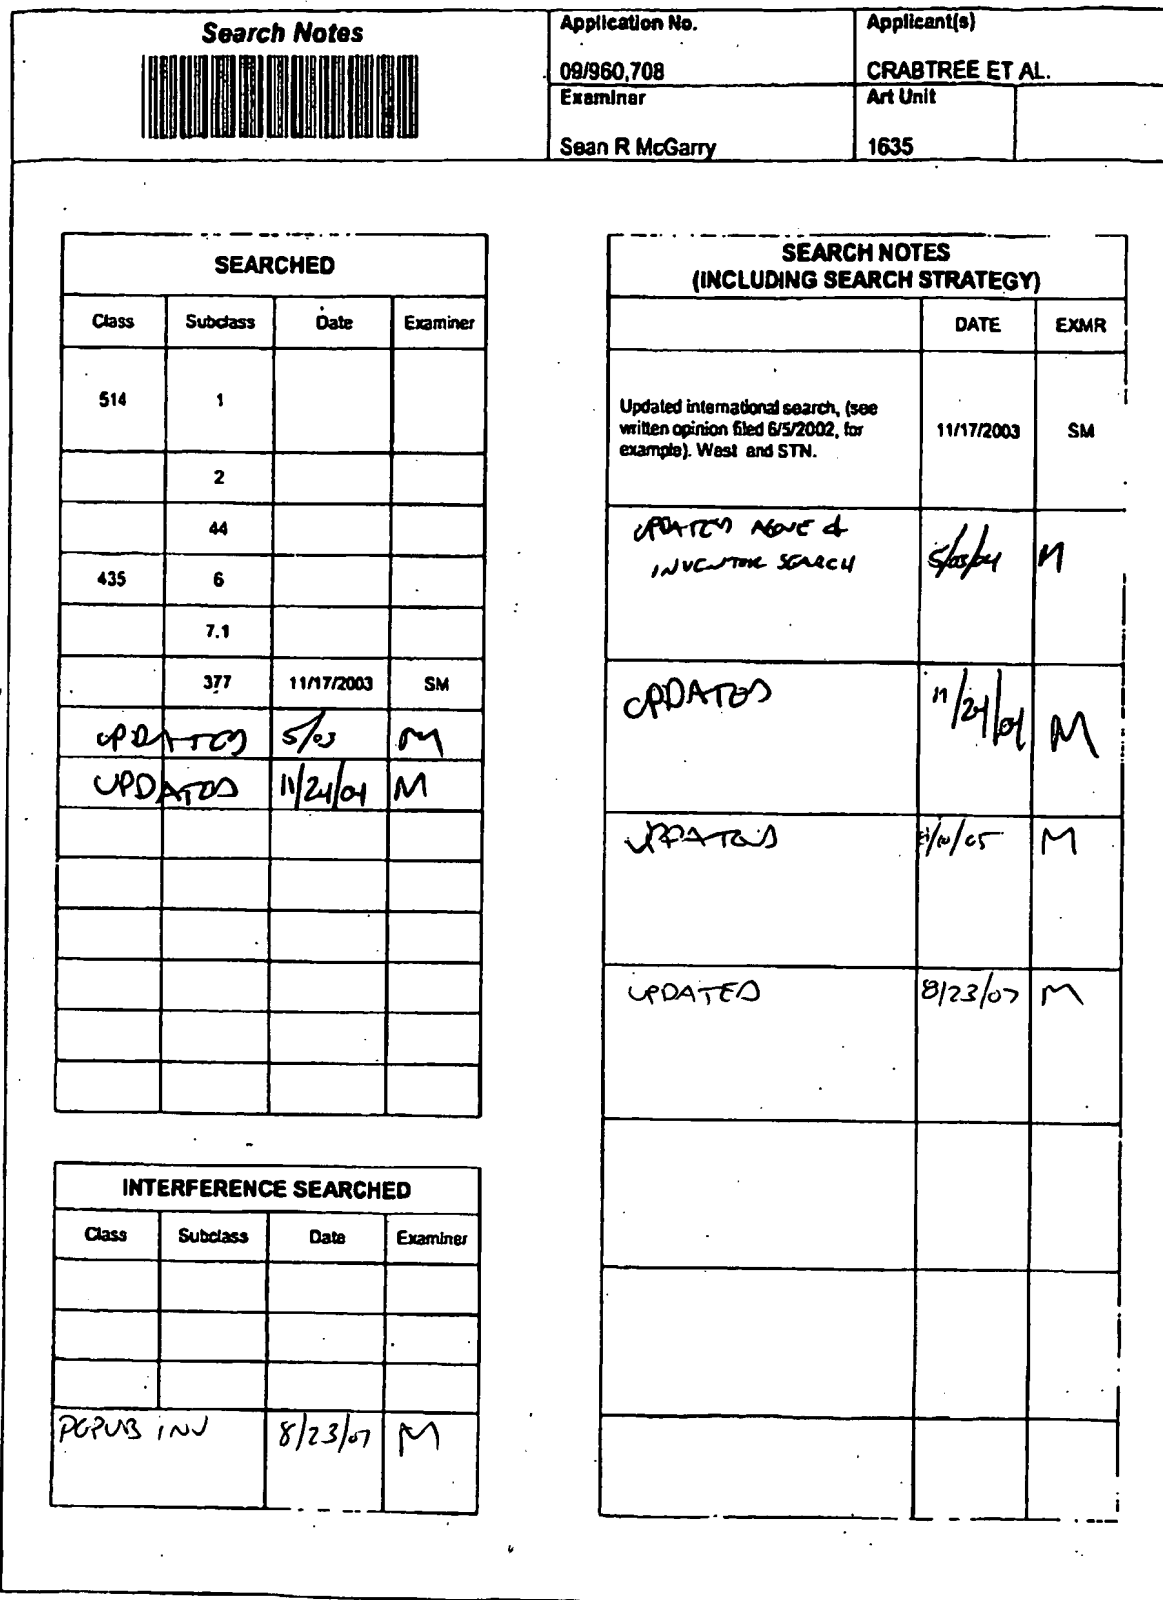 Search Notes
Application No.
09/960,708
Applicant(s)
CRABTREE ET AL.
Examiner
Sean R McGarry
Art Unit
1635
SEARCHED
Class Subclass Date Examiner
514 1
2
44
435 6
7.1
377 11/17/2003 SM
UPDATED 5/03 M
UPDATED 11/24/04 M
INTERFERENCE SEARCHED
Class Subclass Date Examiner
PGPUB INV 8/23/07 M
SEARCH NOTES
(INCLUDING SEARCH STRATEGY)
DATE EXMR
Updated international search, (see
written opinion filed 6/5/2002, for
example). West and STN.
11/17/2003 SM
UPDATED ABOVE &
INVENTOR SEARCH
5/03/04 M
UPDATED 11/24/04 M
UPDATED /10/05 M
UPDATED 8/23/07 M